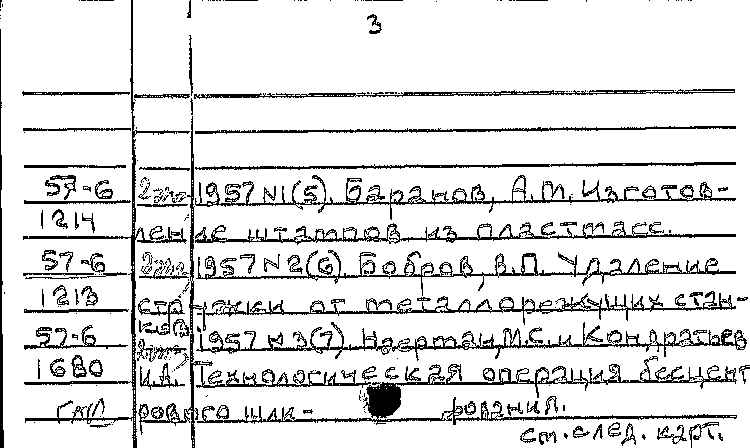 3
57-6 2 экз 1957 №1(5). Баранов, А.М. Изготов-
1214 ление штампов из пластмасс.
57-6 2 экз 1957 №2(6). Бобров, В.П. Удаление
1213 стружки от металлорежущих стан-
ков
57-6 2 экз 1957 №3(7). Наерман, М.С. и Кондратьев
1680 И.А. Технологическая операция бесцент
рового шли- фования.
см. след. карт.